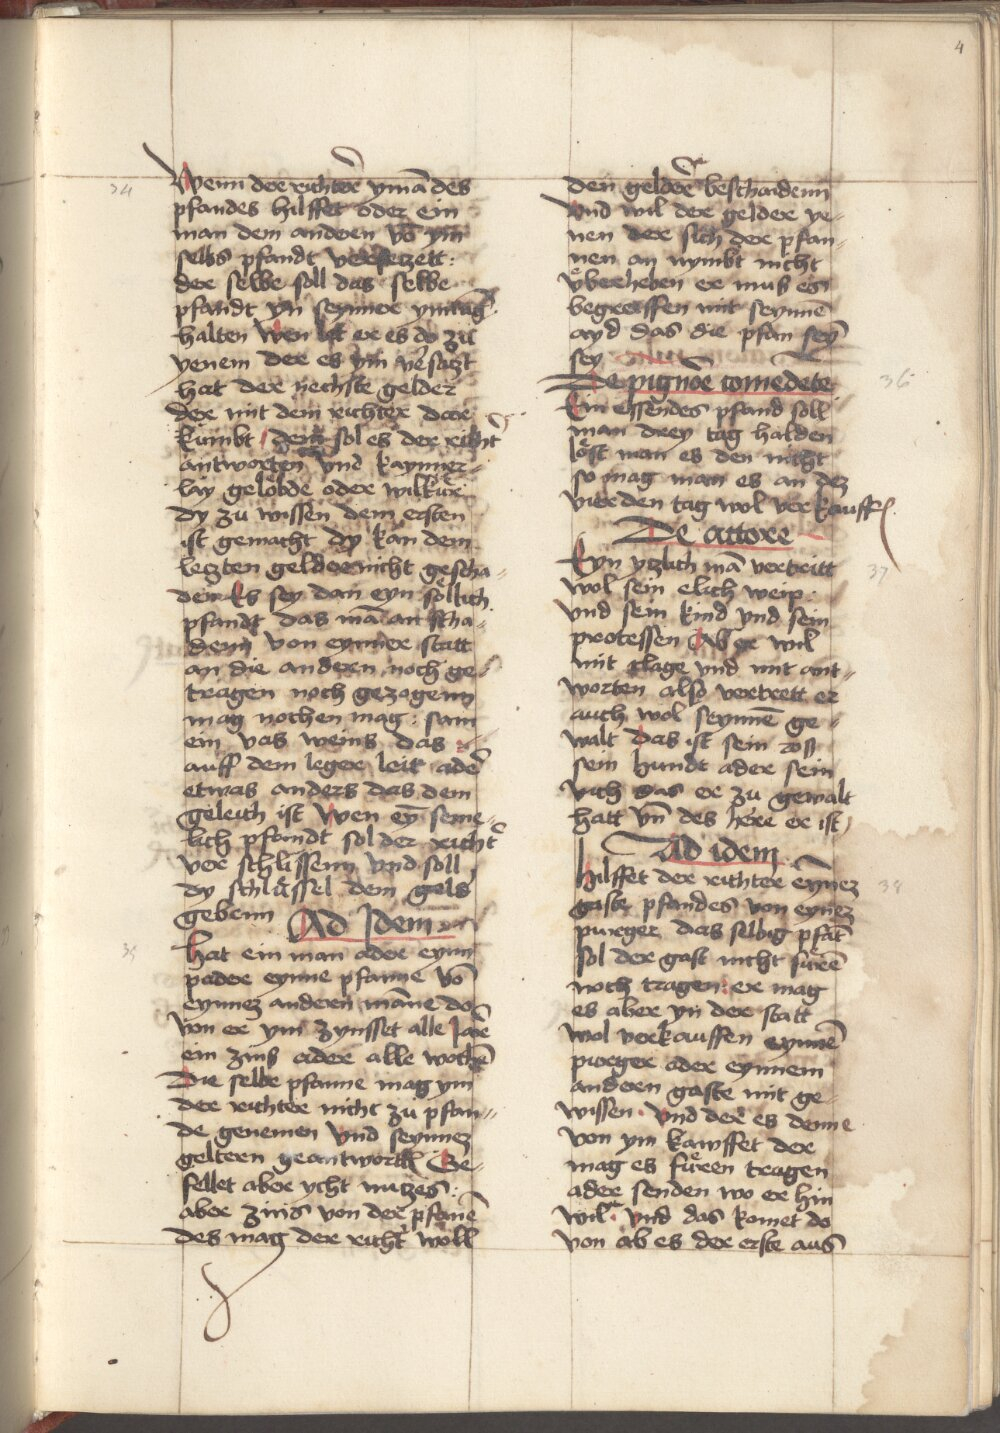 4
34
Wenn der richter ymā des
pfandes hilffet oder ein
man dem anderen vō ym
selbs pfandt versetzett:
der selbe soll das selbe
pfandt yn seynner
halten Wen bit er es do zu
yenem der es ym versatzt
hat der nechste gelder
der mit dem richter dar
kumbt dem sol es der richt
antworten Vnd kaynner-
lay gelobde oder wilkur
dy zu wissen dem ersten
ist gemacht dy kan dem
letzten gelder nicht gescha-
den Es sey dan eyn sollich
pfandt das mā an scha-
denn von eynner statt
an die anderen noch ge-
tragen noch gezogenn
mag nochen mag: sam
ein vas weins das
auff dem leger leit ader
etwas anders das dem
geleich ist Wen eȳ seme-
lich pfandt sol der richt
ver schlissenn Vnd soll
dy schlussel dem gels
gebenn Ad Idem
35
Hat ein man ader eynn
pader eynne pfanne vō
eynnez anderen māne do
von er ym zynsset alle Jare
ein zins ader alle wochē
Die selbe pfanne mag ym
der richter nicht zu pfan-
de genemen Vnd seynnez
geltern geantwortt Ge-
fellet aber ycht nutzes:
aber zins von der pfanē
des mag der richt woll
den gelder beschaidenn
Vnd wil der gelder ye-
nen der sich der pfan-
nen an nymbt nicht
vberheben er mus es
begreiffen mit seynnē
ayd das die pfan seȳ
sey
De pignoe comedēte
36
Ein essendes pfand soll
man drey tag halden
lost man es den nicht
so mag man es an dez
vierden tag wol verkauff
De attore
37
Eyn yzlich mā vertritt
wol sein elich weip
Vnd sein kind Vnd sein
protessen Ab er wil
mit clage Vnd mit ant-
worten also vertrett er
auch wol seynnē ge-
walt Das ist sein ross
sein hundt ader sein
vich das er zu gewalt
hatt Vn des here er ist
Ad idem
38
Hilffet der richter eynnez
gaste pfandes von eynez
purger das selbig pfāt
sol der gast nicht furē
noch tragen: er mag
es aber yn der statt
wol verkauffen eynnē
purger ader eynnem
anderen gaste mit ge-
wissen Vnd der es denne
von ym kawffet der
mag es furen tragen
ader senden wo er hin
wil Vnd das komet do
von ab es der erste aus